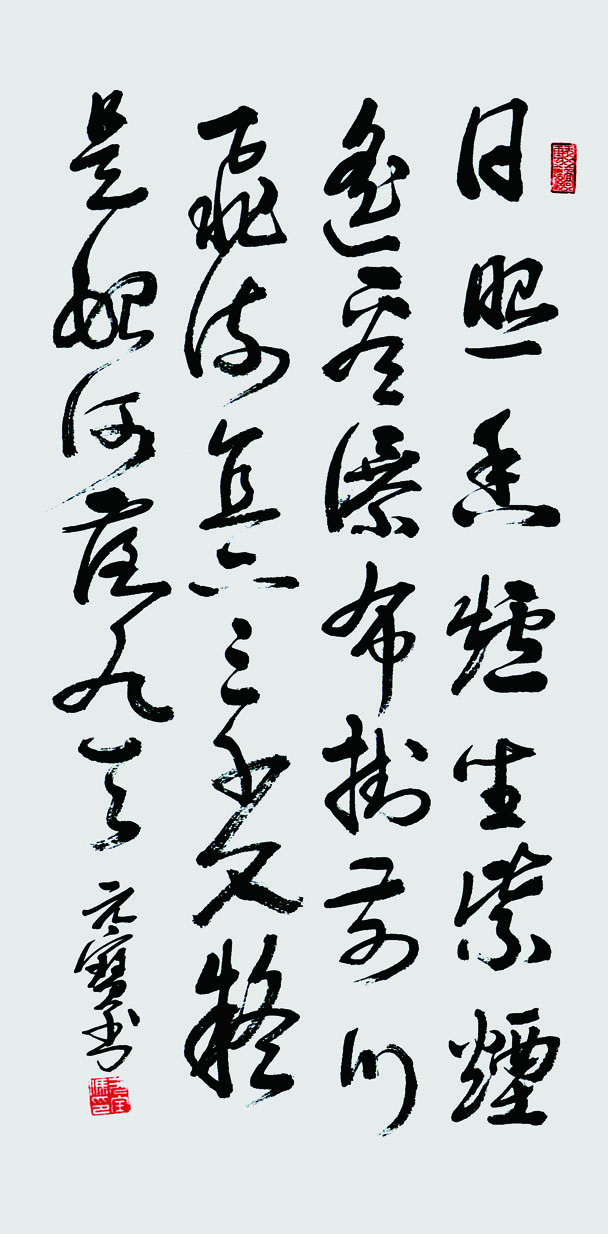 日照香爐生紫煙
遙看瀑布掛前川
飛流直下三千尺疑
是銀河落九天 元寶書